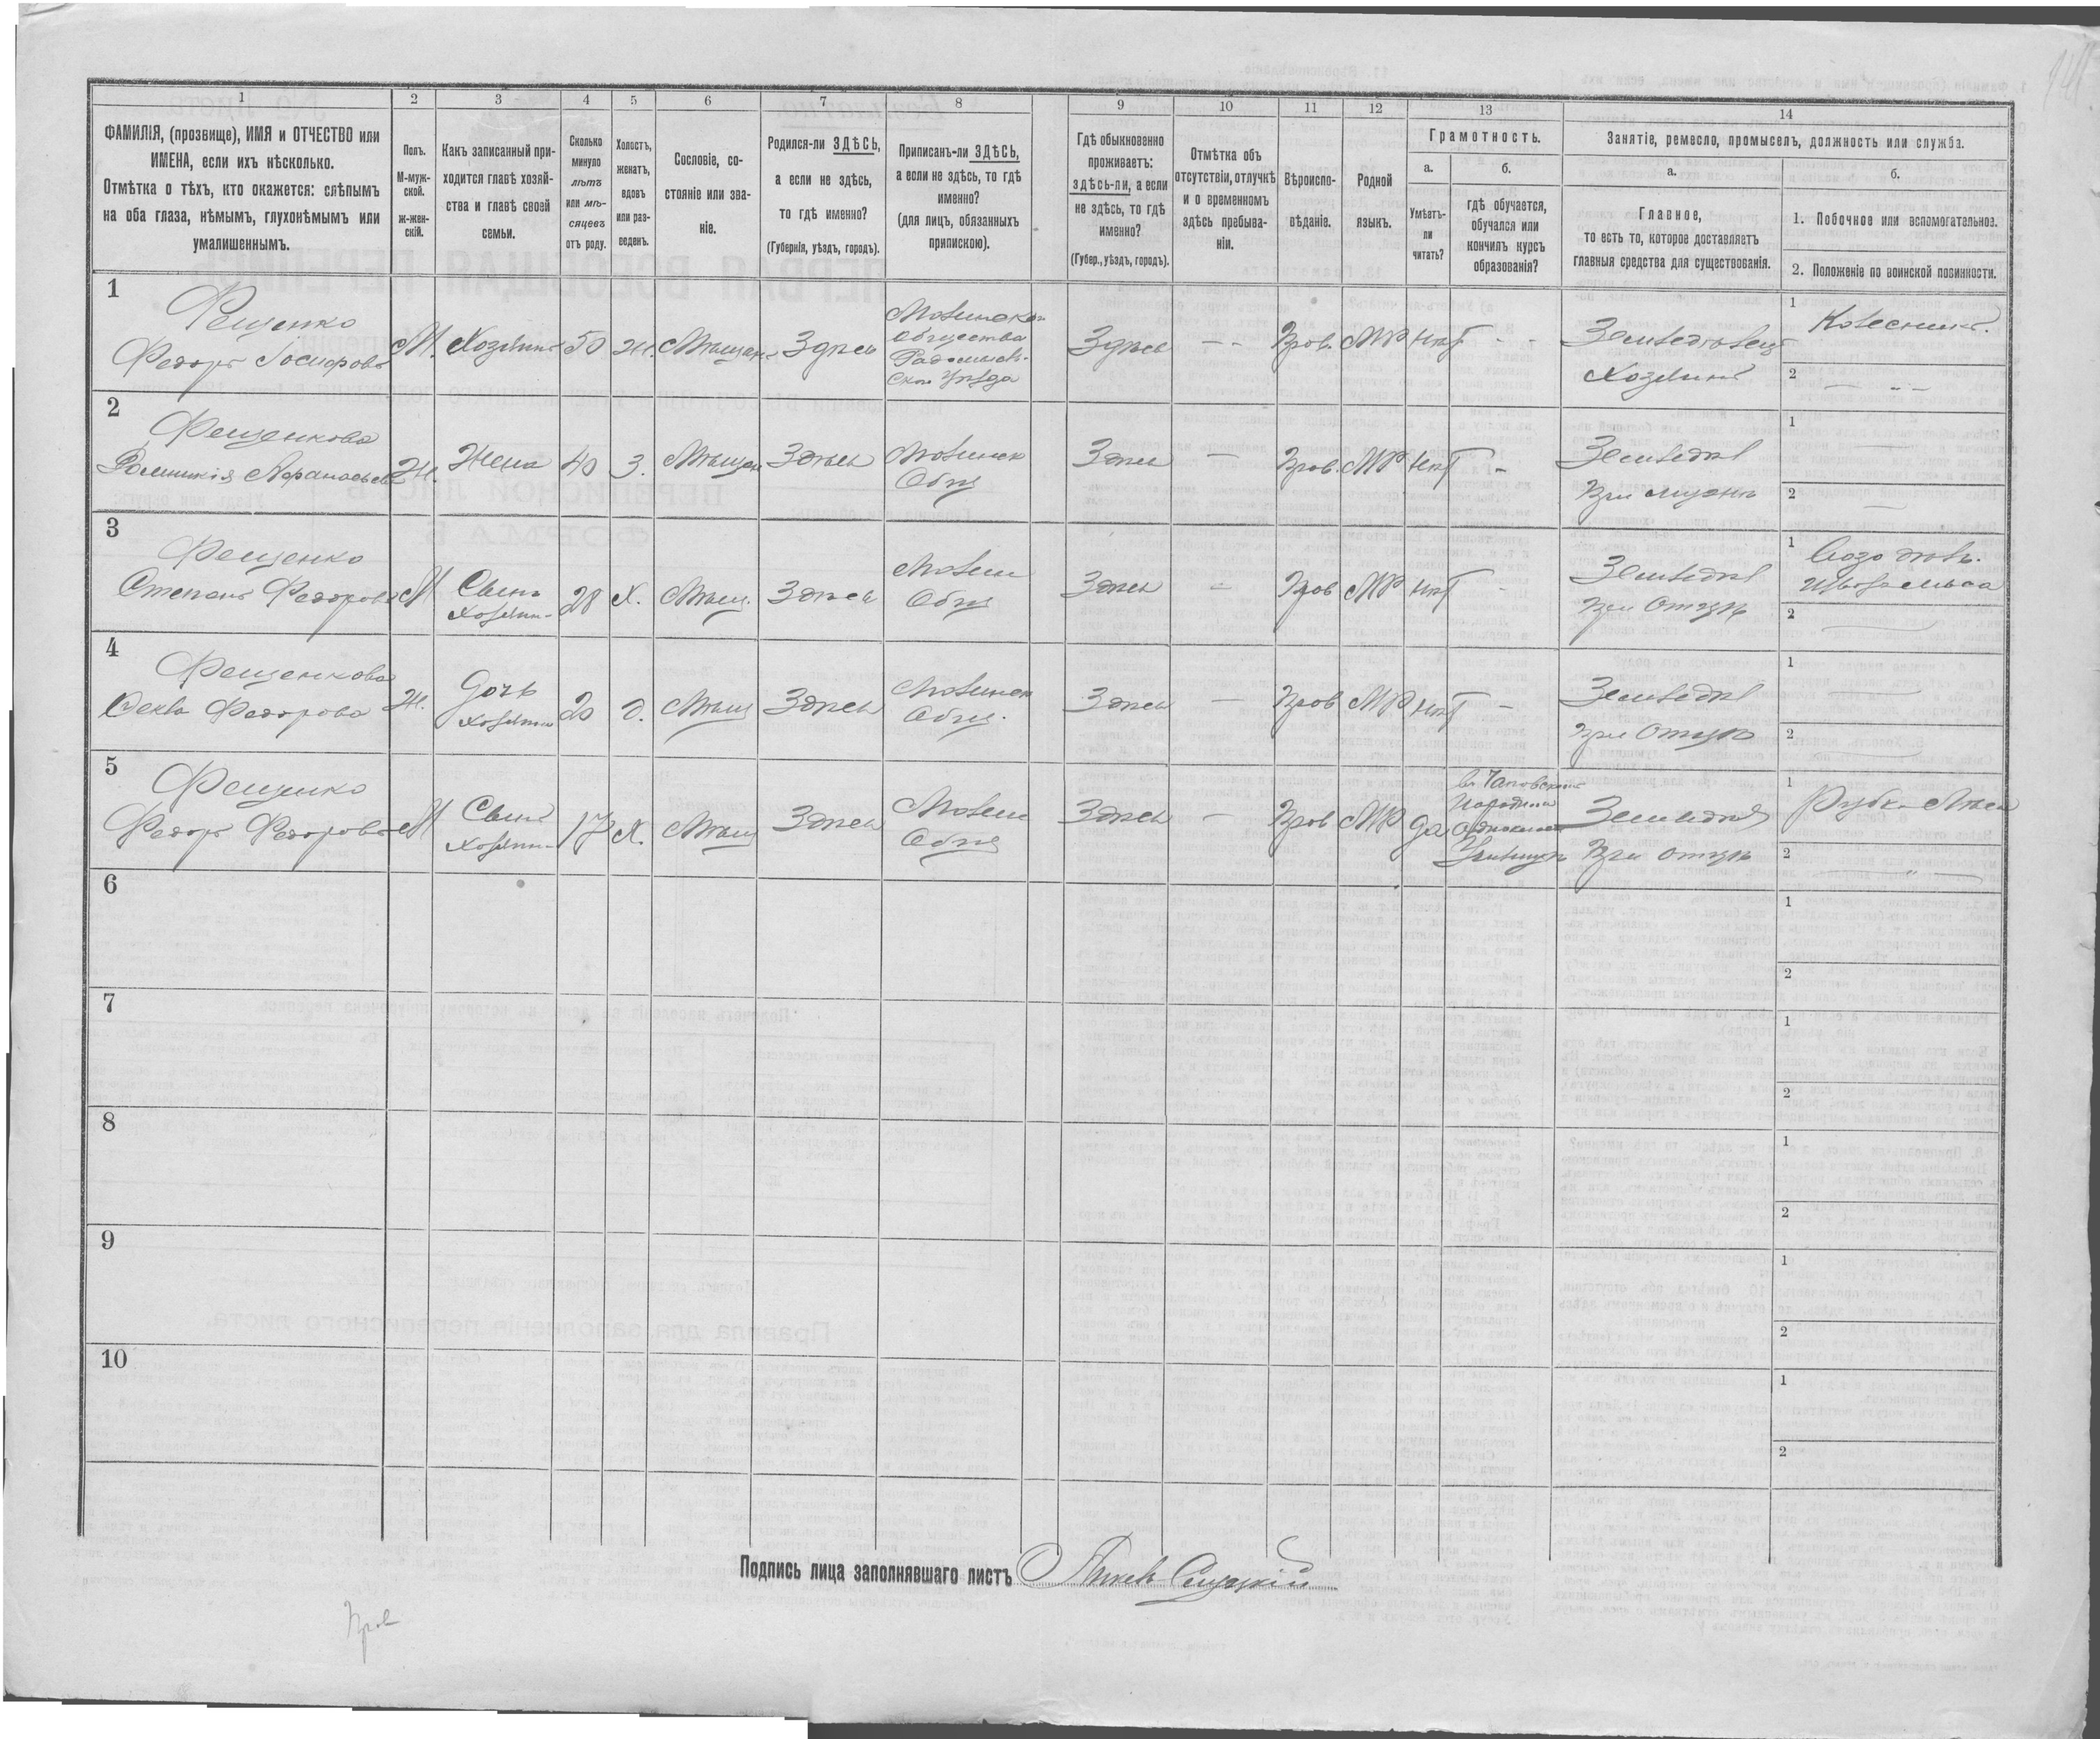 1
2
3
4
5
6
7
8
9
10
11
12
13
14
ФАМИЛІЯ, (прозвище), ИМЯ и ОТЧЕСТВО или
ИМЕНА, если ихъ нѣсколько.
Отмѣтка о тѣхъ, кто окажется: слѣпымъ
на оба глаза, нѣмымъ, глухонѣмымъ или
умалишеннымъ.
Полъ.
М-муж-
ской.
ж-жен-
скій.
Какъ записанный при-
ходится главѣ хозяй-
ства и главѣ своей
семьи.
Сколько
минуло
лѣтъ
или мѣ-
сяцевъ
отъ роду.
Холостъ,
женатъ,
вдовъ
или раз-
веденъ.
Сословіе, со-
стояніе или зва-
ніе.
Родился-ли ЗДѢСЬ,
а если не здѣсь,
то гдѣ именно?
(Губернія, уѣздъ, городъ).
Приписанъ-ли ЗДѢСЬ,
а если не здѣсь, то гдѣ
именно?
(для лицъ, обязанныхъ
припискою).
Гдѣ обыкновенно
проживаетъ:
здѣсь-ли, а если
не здѣсь, то гдѣ
именно?
(Губер., уѣздъ, городъ).
Отмѣтка объ
отсутствіи, отлучкѣ
и о временномъ
здѣсь пребыва-
ніи.
Вѣроиспо-
вѣданіе.
Родной
языкъ.
Грамотность.
а.
Умѣетъ-
ли
читать?
б.
гдѣ обучается,
обучался или
кончилъ курсъ
образованія?
Занятіе, ремесло, промыселъ, должность или служба.
а.
Главное,
то есть то, которое доставляетъ
главныя средства для существованія.
б.
1. Побочное или вспомогательное.
2. Положеніе по воинской повинности.
1
Фещенко
Федоръ Іосифовъ
М.
Хозяинъ
50
Ж.
Мѣщан
Здѣсь
Общества
Радомысл-
Здѣсь
Прав.
МР
нѣт
Земледѣлецъ
Хозяинъ
1
Колесникъ.
2
2
Фещенкова
Афанасьева
Ж.
Жена
40
З.
Мѣщан
Здѣсь
Общ
Здѣсь
Прав.
МР
нѣт
Земледѣл
При мужѣ
1
2
3
Фещенко
Степанъ Федоровъ
М
Сынъ
Хозяин
28
Х.
Мѣщ.
Здѣсь
Общ
Здѣсь
Прав
МР
нѣт
Земледѣл
При Отцѣ
1
2
4
Фещенкова
Федорова
Ж.
Дочь
Хозяина
20
д.
Мѣщ
Здѣсь
Общ.
Здѣсь
Прав
МР
нѣт
Земледѣл
При Отцѣ
1
2
5
Фещенко
Федоръ Федоровъ
М
Сынъ
Хозяин
17
Х.
Мѣщ
Здѣсь
Общ
Здѣсь
Прав
МР
да
Земледѣл
При отцѣ
1
Рубка Лѣса
2
6
1
2
7
1
2
8
1
2
9
1
2
10
1
2
Подпись лица заполнявшаго листъ
Прав